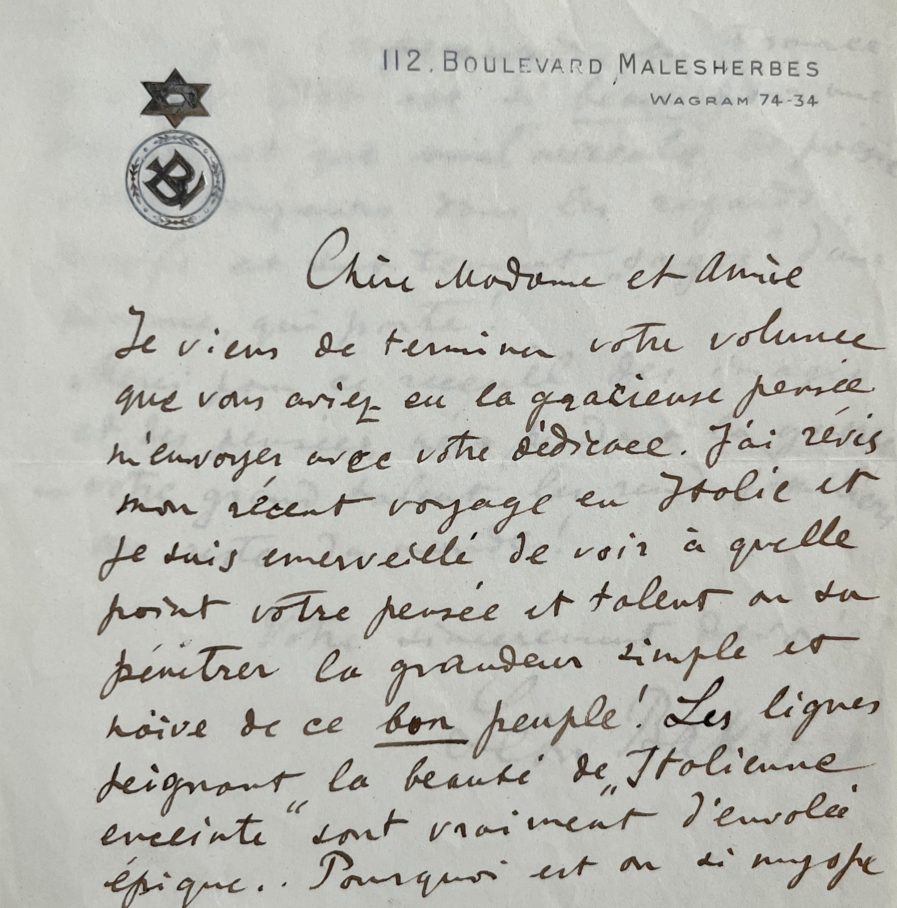 112, BOULEVARD MALESHERBES
WAGRAM 74-34
Chère Madame et Amie
Je viens de terminer votre volume
que vous aviez eu la gracieuse pensée
m'envoyer avec votre dédicace. J'ai révis
mon récent voyage en Italie et
je suis emerveillé de voir à quelle
point votre pensée et talent on su
pénétrer la grandeur simple et
näive de ce bon peuple! Les lignes
peignant la beauté de „Italienne
enceinte“ sont vraiment d'envolée
épique.. Pourquoi est on si myope